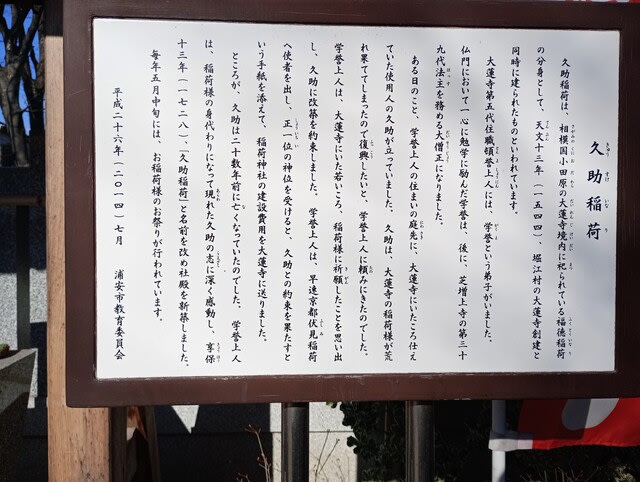 久助稲荷
久助稲荷は、相模国小田原の大蓮寺境内に祀られている福徳稲荷
の分身として、天文十三年(一五四四)、堀江村の大蓮寺創建と
同時に建られたものといわれています。
大蓮寺第五代住職頓誉上人には、学誉という弟子がいました。
仏門において一心に勉学に励んだ学誉は、後に、芝増上寺の第三十
九代法主を務める大僧正になりました。
ある日のこと、学誉上人の住まいの庭先に、大蓮寺にいたころ仕え
ていた使用人の久助が立っていました。久助は、大蓮寺の稲荷様が荒
れ果ててしまったので復興したいと、学誉上人に頼みにきたのでした。
学誉上人は、大蓮寺にいた若いころ、稲荷様に祈願したことを思い出
し、久助に改築を約束しました。学誉上人は、早速京都伏見稲荷
へ使者を出し、正一位の神位を受けると、久助との約束を果たすと
いう手紙を添えて、稲荷神社の建設費用を大蓮寺に送りました。
ところが、久助は二十数年前に亡くなっていたのでした。学誉上人
は、稲荷様の身代わりになって現れた久助の志に深く感動し、享保
十三年(一七二八)、「久助稲荷」と名前を改め社殿を新築しました。
毎年五月中旬には、お稲荷様のお祭りが行われています。
平成二十六年(二〇一四)七月 浦安市教育委員会